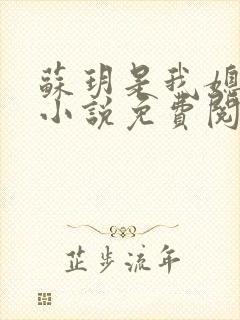 蘇玥是我媳
小説免費閱
芷步流年